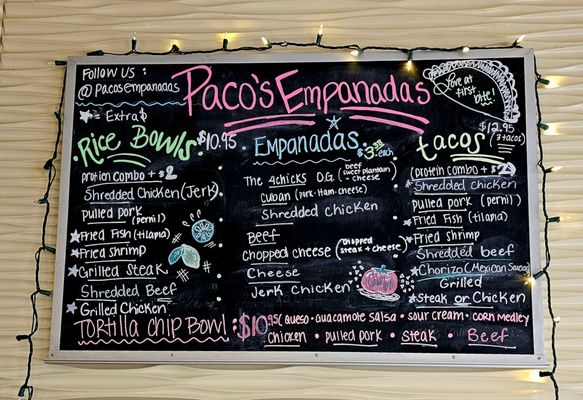 Follow Us :
@Pacosempanadas
★ = Extra $
Paco's Empanadas
Love at
first
bite!
Rice Bowls $10.95
protien combo + $2
Shredded Chicken (Jerk)
Pulled Pork (pernil)
★ Fried Fish (tilapia)
★ Fried Shrimp
★ Grilled Steak
Shredded Beef
★ Grilled Chicken
Empanadas
each
The 4chicks O.G. (beef sweet plantain + cheese)
Cuban (pork-Ham-cheese)
Shredded chicken
Beef
Chopped cheese (chopped steak + cheese)
Cheese
Jerk Chicken
tacos $12.95
(3 tacos)
(protein combo +
★ Shredded chicken
Pulled Pork (pernil)
★ Fried Fish (tilapia)
★ Fried Shrimp
Shredded beef
★ Chorizo (Mexican Sausag
Grilled
★ Steak or Chicken
Tortilla chip Bowl : $10.95 (Queso · guacamole salsa · sour cream · corn medley
Chicken · pulled pork · Steak · Beef